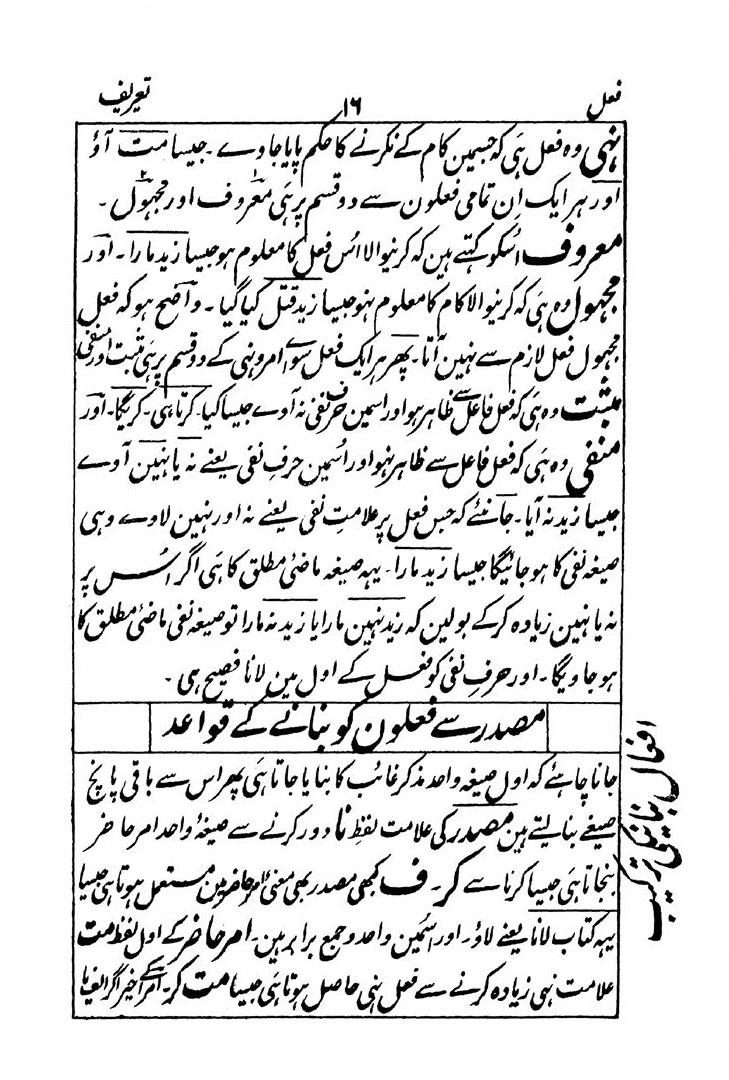 فعل ۱۶ تعریف
نہی وہ فعل ہی کہ جسمین کام کے نکرنے کا حکم پایا جاوے ۔ جیسا مت آؤ
اور ہر ایک اِن تمامی فعلون سے دو قسم پر ہی معروف اور مجہول ۔
معروف اُسکو کہتے ہین کہ کرنیوالا اُس فعل کا معلوم ہو جیسا زید مارا ۔ اور
مجہول وہ ہی کہ کرنیوالا کام کا معلوم نہو جیسا زید قتل کیا گیا ۔ واضح ہو کہ فعل
مجہول فعل لازم سے نہین آتا ۔ پھر ہر ایک فعل سوے امر و نہی کے دو قسم پر ہی مثبت اور منفی
مثبت وہ ہی کہ فعل فاعل سے ظاہر ہو اور اسمین حرف نفی نہ آوے جیسا کیا ۔ کرتا ہی ۔ کریگا ۔ اور
منفی وہ ہی کہ فعل فاعل سے ظاہر نہو اور اُسمین حرفِ نفی یعنے نہ یا نہین آوے
جیسا زید نہ آیا ۔ جاننئے کہ جس فعل پر علامتِ نفی یعنے نہ اور نہین لاوے وہی
صیغہ نفی کا ہو جائیگا جیسا زید مارا ۔ یہہ صیغہ ماضیٔ مطلق کا ہی اگر اُس پر
نہ یا نہین زیادہ کر کے بولین کہ زید نہین مارا یا زید نہ مارا تو صیغہ نفی ماضیٔ مطلق کا
ہو جاویگا ۔ اور حرفِ نفی کو فعل کے اول مین لانا فصیح ہی ۔
مصدر سے فعلون کو بنانے کے قواعد
جانا چاہئے کہ اول صیغہ واحد مذکر غائب کا بنایا جاتا ہی پھر اس سے باقی پانچ
صیغے بنا لیتے ہین مصدر کی علامت لفظِ نا دور کرنے سے صیغۂ واحد امر حاضر
بنجاتا ہی جیسا کرنا سے کر ۔ ف کبھی مصدر بھی معنیٔ امر حاضر مین مستعمل ہوتا ہی جیسا
یہہ کتاب لانا یعنے لاؤ ۔ اور اسمین واحد و جمع برابر ہین ۔ امر حاضر کے اول لفظ مت
علامت نہی زیادہ کرنے سے فعل نہی حاصل ہوتا ہی جیسا مت کر ۔ امر کے آخر اگر الف یا
افعال بنانیکی ترکیب